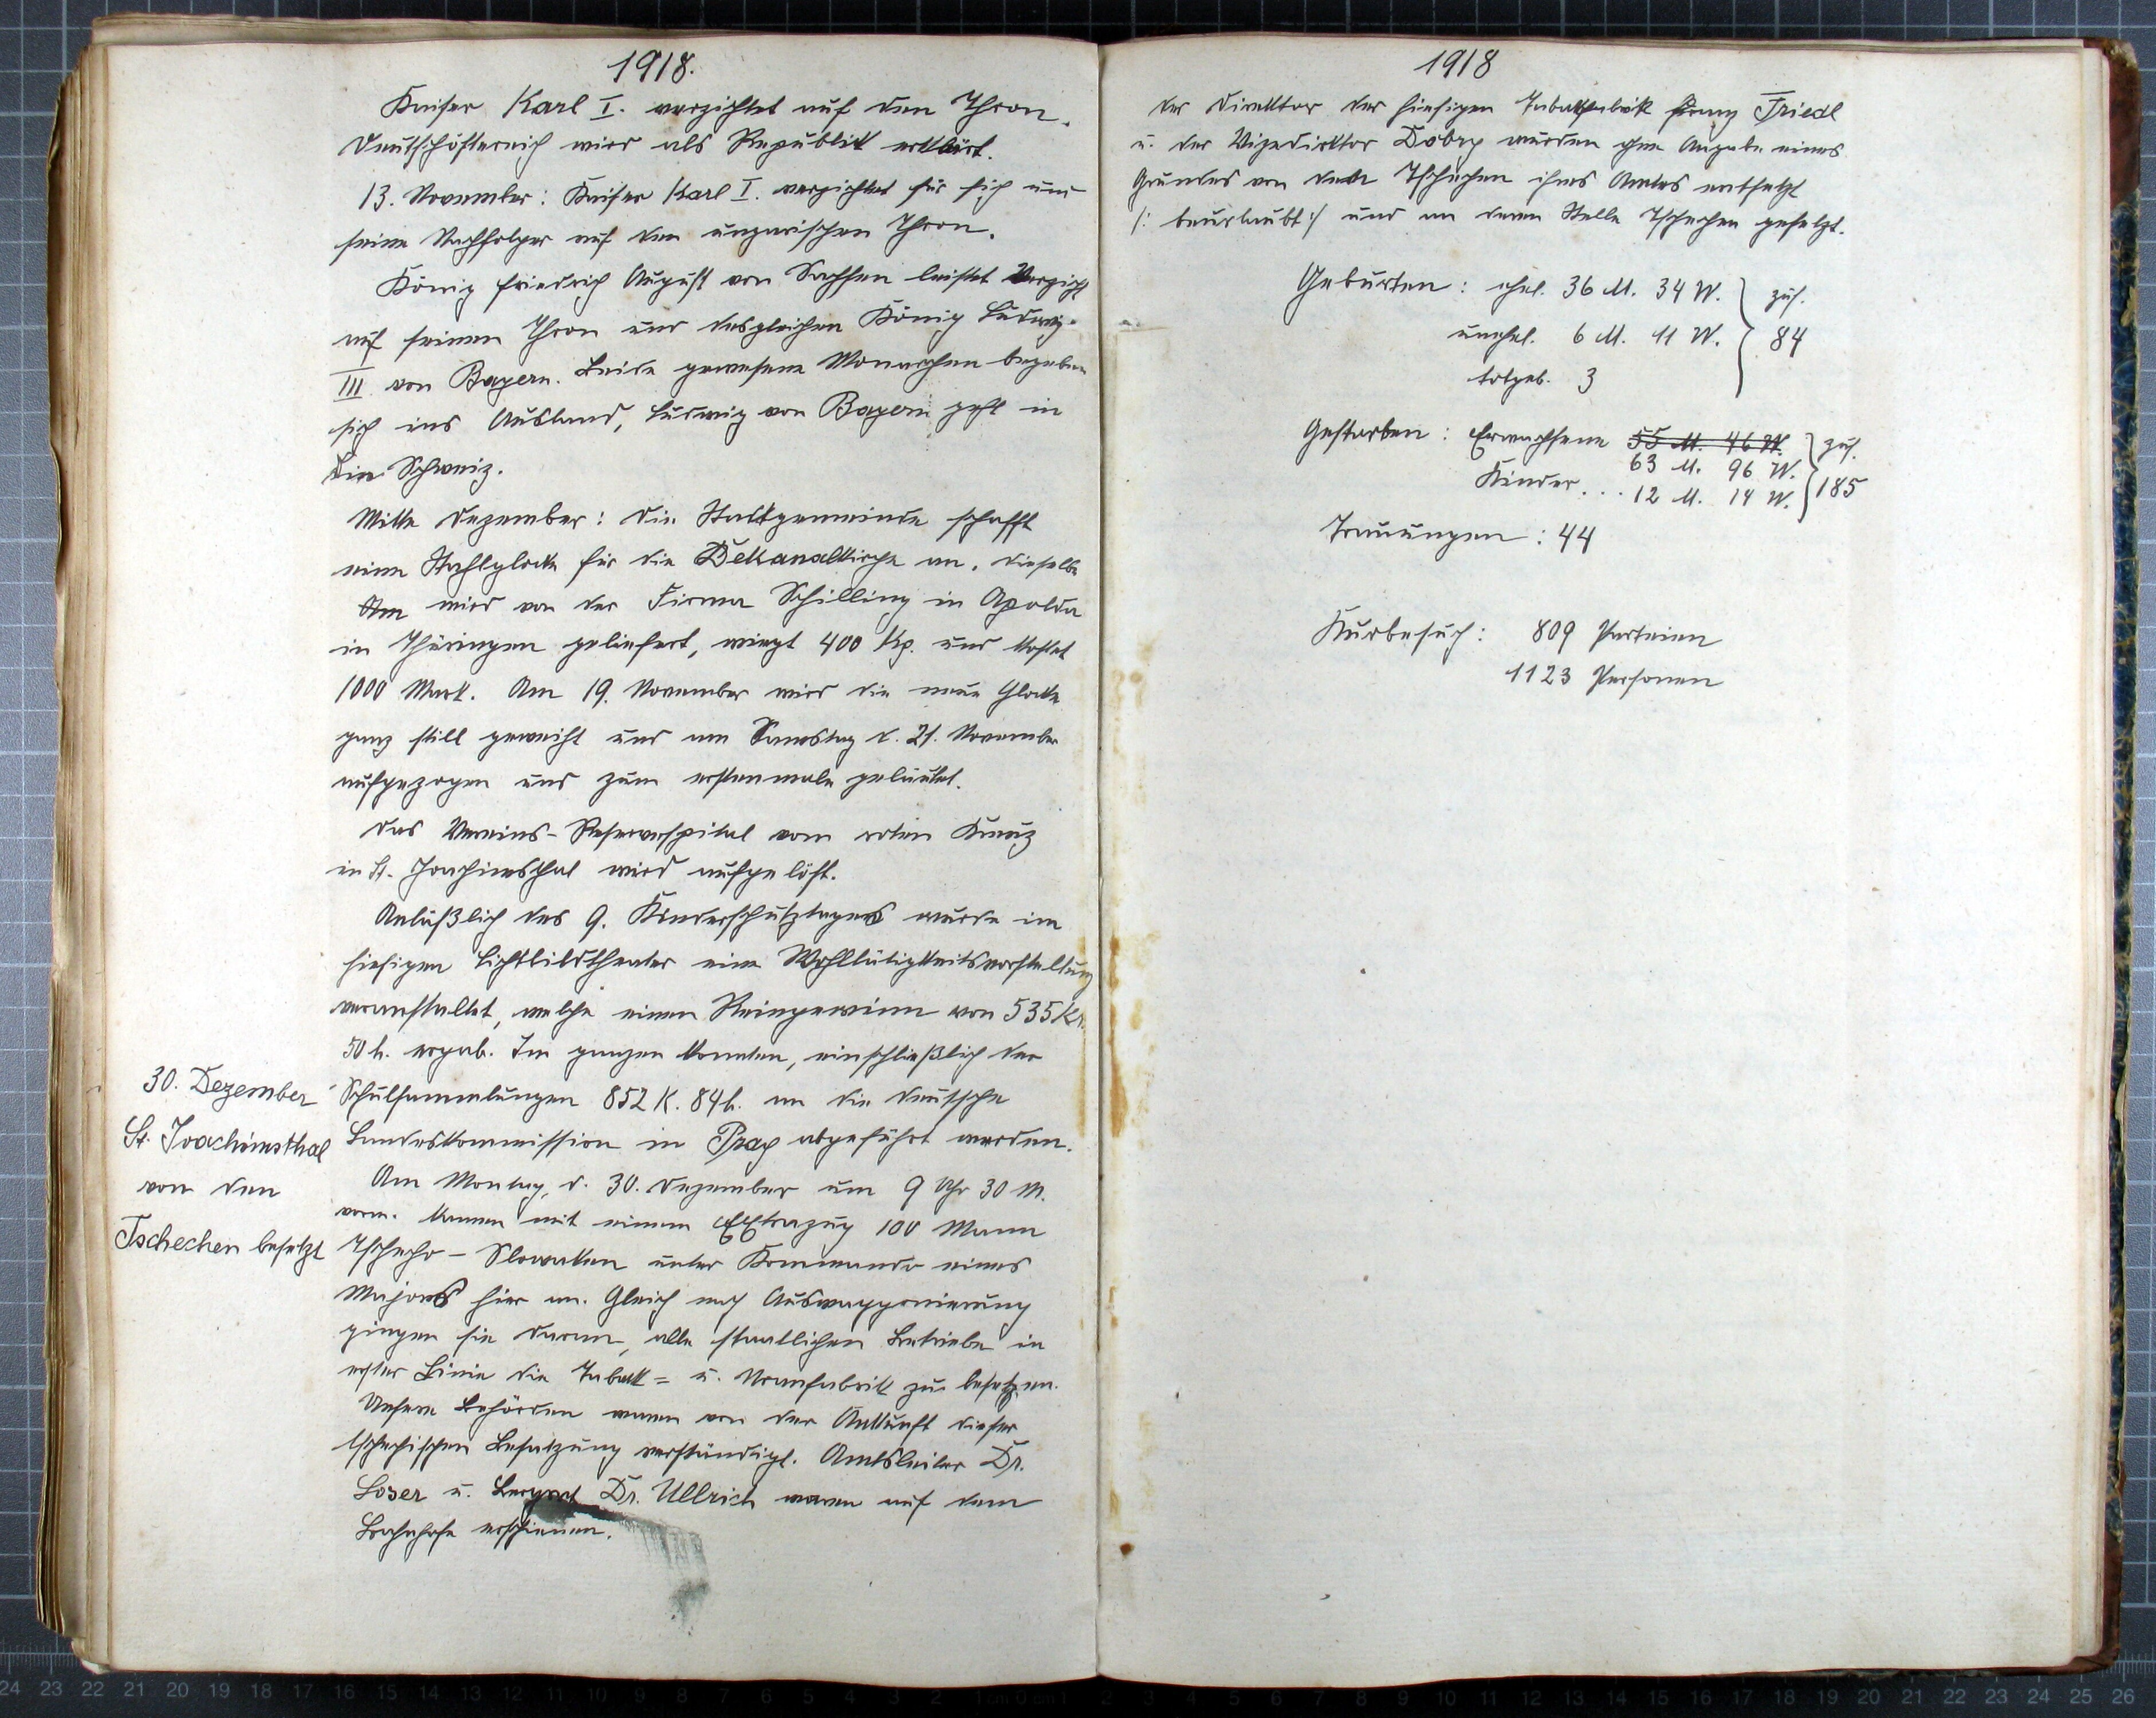 1918.
Kaiser Karl I. verzichtet auf den Thron.
Deutschösterreich wird als Republik erklärt.
13. November: Kaiser Karl I. verzichtet für sich und
seine Nachfolger auf den ungarischen Thron.
König Friedrich August von Sachsen leistet Verzicht
auf seinen Thron und desgleichen König Ludwig
III. von Bayern. Beide gewesene Monarchen begeben
sich ins Ausland, Ludwig von Bayern geht in
die Schweiz.
Mitte Dezember: Die Stadtgemeinde schafft
eine Stahlglocke für die Dekanalkirche an. Dieselbe
wird von der Firma Schilling in Apolda
in Thüringen geliefert, wiegt 400 Kg. und kostet
1000 Mark. Am 19. November wird die neue Glocke
ganz still geweiht und am Samstag d. 21. November
aufgezogen und zum erstenmale geläutet.
Das Vereins-Reservespital vom roten Kreuz
in St. Joachimsthal wird aufgelöst.
Anläßlich des 9. Kinderschutztages wurde im
hiesigen Lichtbildtheater eine Wohltätigkeitsvorstellung
veranstaltet, welche einen Reingewinn von 535 Kr.
50 h. ergab. Im ganzen konnten, einschließlich der
Schulsammlungen 852 K. 84 h. an die deutsche
Landeskommission in Prag abgeführt werden.
30. Dezember
St. Joachimsthal
von den
Tschechen besetzt
Am Montag, d. 30. Dezember um 9 Uhr 30 M.
vorm. kamen mit einem Extrazug 100 Mann
Tschecho-Slowaken unter Kommando eines
Majors hier an. Gleich nach Auswaggonierung
gingen sie daran, alle staatlichen Betriebe in
erster Linie die Tabak= u. Uranfabrik zu besetzen.
Unsere Behörden waren von der Ankunft dieser
tschechischen Besatzung verständigt. Amtsleiter Dr.
Loser u. Bergrat Dr. Ullrich waren auf dem
Bahnhofe erschienen.
1918
Der Direktor der hiesigen Tabakfabrik Franz Friedl
u. der Vizedirektor Dobry wurden ohne Angabe eines
Grundes von den Tschechen ihres Amtes entsetzt
/: beurlaubt :/ und an deren Stelle Tschechen gesetzt.
Geburten: ehel. 36 M. 34 W. zus.
unehel. 6 M. 11 W. 84
totgeb. 3
Gestorben: Erwachsene 55 M. 46 W. zus.
63 M. 96 W.
Kinder... 12 M. 14 W. 185
Trauungen: 44
Kurbesuch: 809 Parteien
1123 Personen